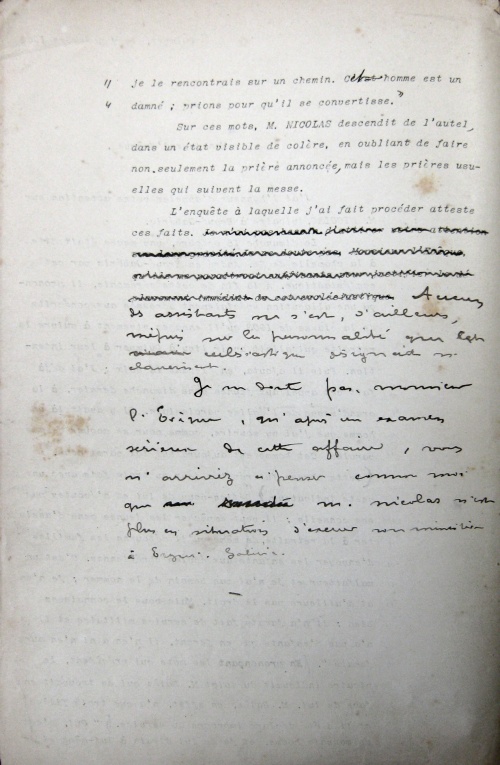 " je le rencontrais sur un chemin. Cet homme est un
" damné ; prions pour qu'il se convertisse."
Sur ces mots, M. NICOLAS descendit de l'autel,
dans un état visible de colère, en oubliant de faire
non seulement la prière annoncée, mais les prières usu-
elles qui suivent la messe.
L'enquête à laquelle j'ai fait procéder atteste
ces faits. Aucun
des assistants ne s'est, d'ailleurs,
mépris sur la personnalité que
ecclésiastique désignait si
clairement.
Je ne doute pas, monsieur
l'Evêque, qu'après un examen
sérieux de cette affaire, vous
n'arriviez à penser comme moi
que M. Nicolas n'est
plus en situation d'exercer son ministère
à